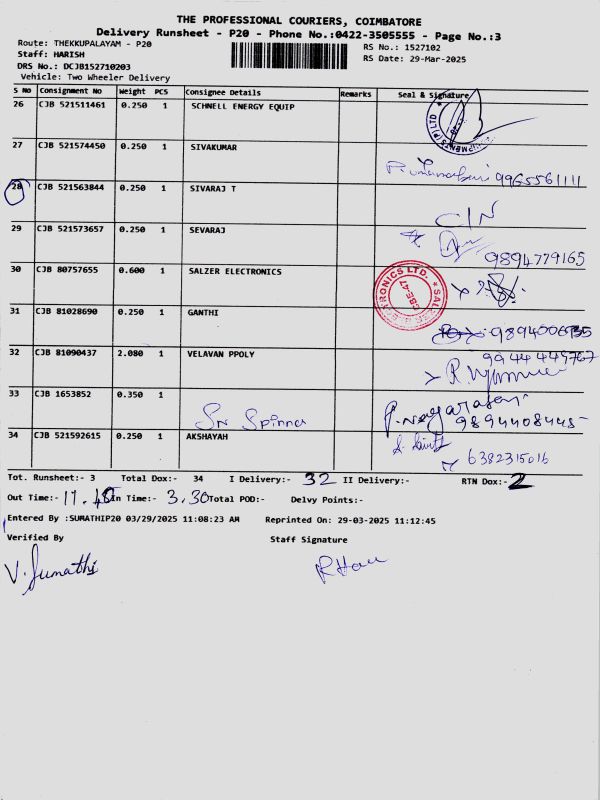 THE PROFESSIONAL COURIERS, COIMBATORE
Delivery Runsheet - P20 - Phone No.:0422-3505555 - Page No.:3
Route: THEKKUPALAYAM - P20
RS No.: 1527102
Staff: HARISH
RS Date: 29-Mar-2025
DRS No.: DCJB152710203
Vehicle: Two Wheeler Delivery
S No Consignment No Weight PCS Consignee Details Remarks Seal & Signature
26 CJB 521511461 0.250 1 SCHNELL ENERGY EQUIP
27 CJB 521574450 0.250 1 SIVAKUMAR
9965561111
28 CJB 521563844 0.250 1 SIVARAJ T
C/N
29 CJB 521573657 0.250 1 SEVARAJ
9894779165
30 CJB 80757655 0.600 1 SALZER ELECTRONICS
31 CJB 81028690 0.250 1 GANTHI
32 CJB 81090437 2.080 1 VELAVAN PPOLY
33 CJB 1653852 0.350 1
Sri Spinner
9894408445
34 CJB 521592615 0.250 1 AKSHAYAH
6382315016
Tot. Runsheet:- 3 Total Dox:- 34 I Delivery:- 32 II Delivery:- RTN Dox:- 2
Out Time:- 11.40 In Time:- 3.30 Total POD:- Delvy Points:-
Entered By :SUMATHIP20 03/29/2025 11:08:23 AM Reprinted On: 29-03-2025 11:12:45
Verified By Staff Signature
V. Sumathi